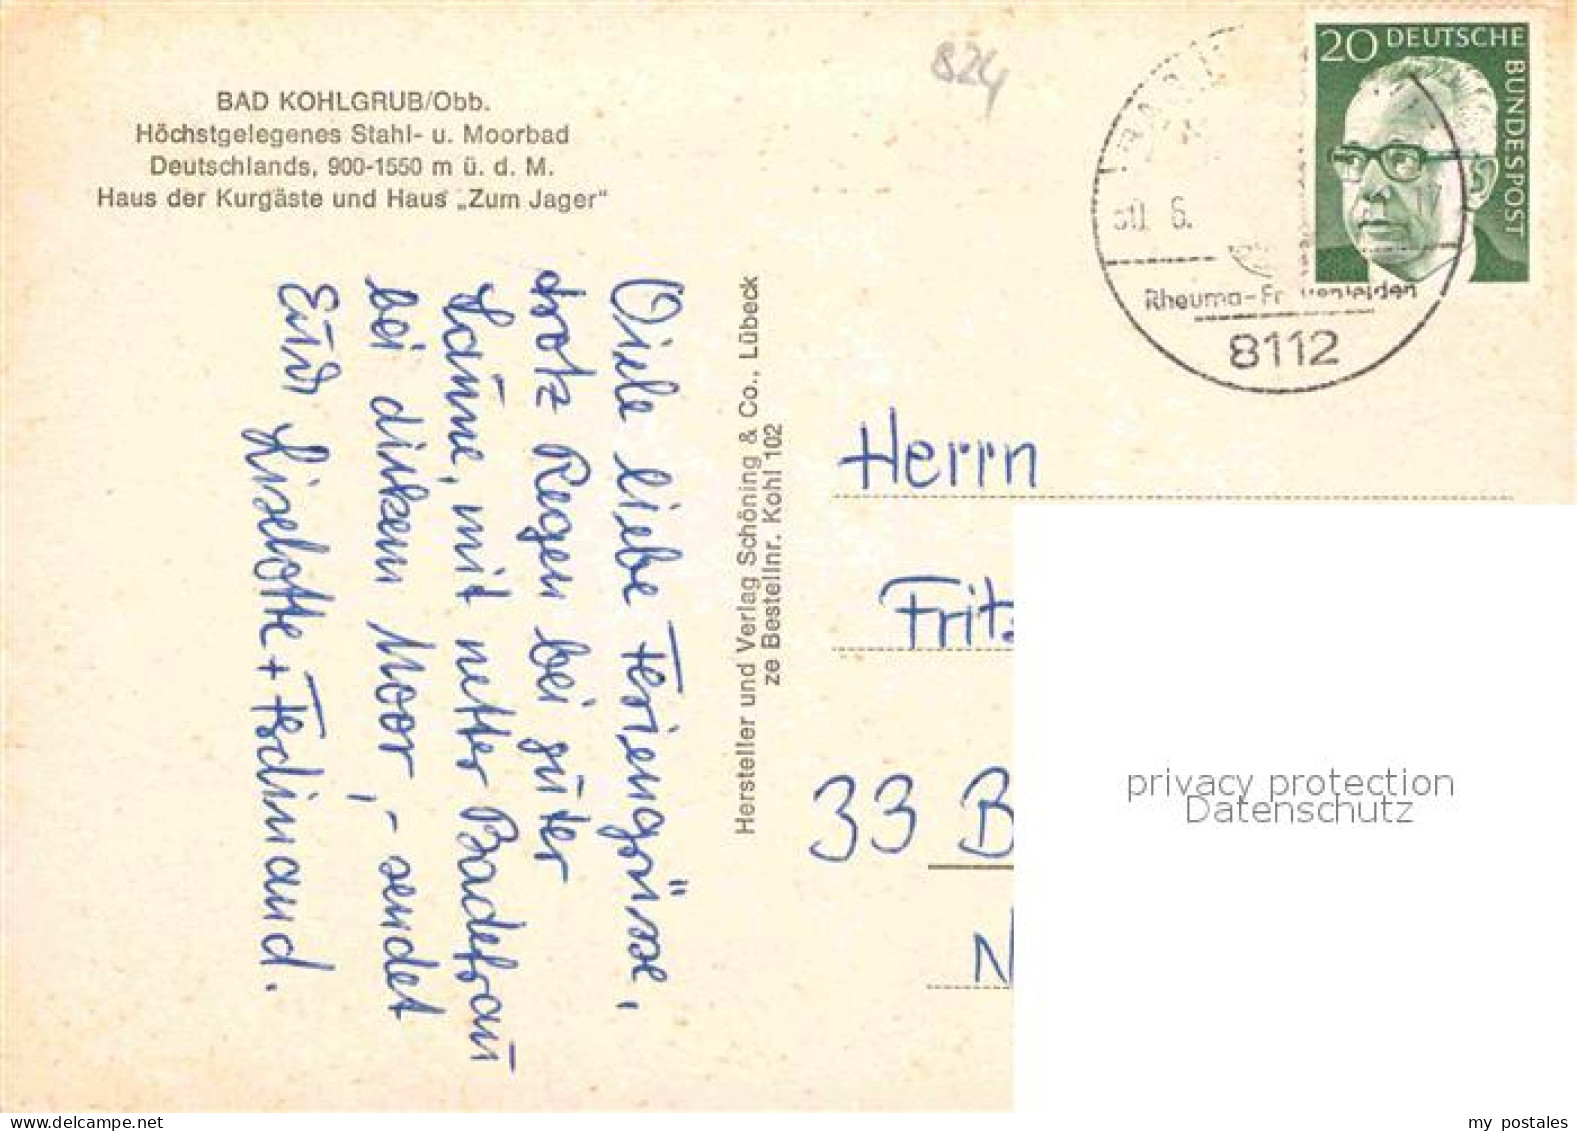 BAD KOHLGRUB/Obb.
Höchstgelegenes Stahl- u. Moorbad
Deutschlands, 900-1550 m ü. d. M.
Haus der Kurgäste und Haus „Zum Jager“
Viele liebe Feriengrüsse,
trotz Regen bei guter
Laune, mit netter Badefrau
bei dickem Moor, - sendet
Eure Liselotte + Ferdinand.
Hersteller und Verlag Schöning & Co., Lübeck
ze Bestellnr. Kohl 102
824
20 DEUTSCHE
BUNDESPOST
6.
Rheuma-Fr
8112
Herrn
Fritz
33 B
N
privacy protection
Datenschutz
www.delcampe.net
my postales